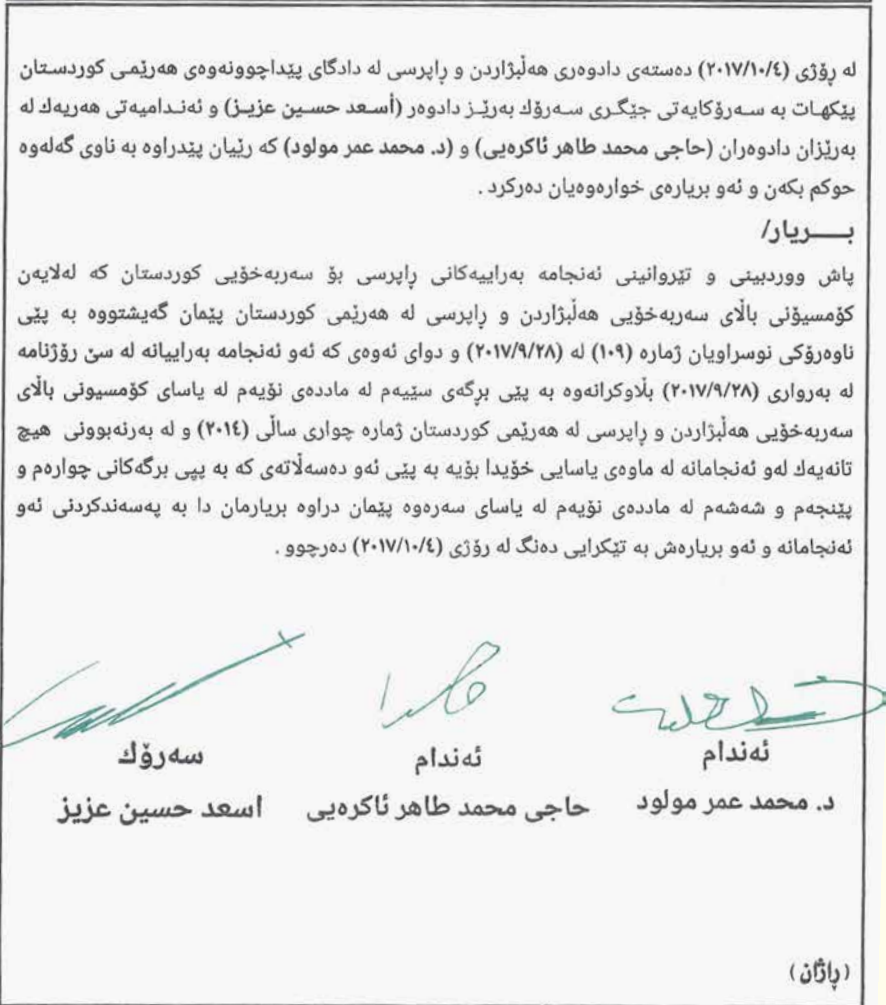 له ڕۆژی (٢٠١٧/١٠/٤) دەستەی دادوەری هەڵبژاردن و ڕاپرسی لە دادگای پێداچوونەوەی هەرێمی کوردستان
پێکهات به سەرۆکایەتی جێگری سەرۆك بەرێز دادوەر (أسعد حسین عزیز) و ئەندامیەتی هەریەك له
بەرێزان دادوەران (حاجی محمد طاهر ئاکرەیی) و (د. محمد عمر مولود) که رێیان پێدراوه به ناوی گەلەوه
حوکم بکەن و ئەو بریارەی خوارەوەیان دەرکرد .
بـــــریار/
پاش ووردبینی و تێروانینی ئەنجامه بەراییەکانی ڕاپرسی بۆ سەربەخۆیی کوردستان که لەلایەن
کۆمسیۆنی باڵای سەربەخۆیی هەڵبژاردن و ڕاپرسی له هەرێمی کوردستان پێمان گەیشتووه به پێی
ناوەرۆکی نوسراویان ژماره (١٠٩) له (٢٠١٧/٩/٢٨) و دوای ئەوەی که ئەو ئەنجامه بەراییانه له سێ رۆژنامه
له بەرواری (٢٠١٧/٩/٢٨) بڵاوکرانەوه به پێی برگەی سێیەم له ماددەی نۆیەم له یاسای کۆمسیونی باڵای
سەربەخۆیی هەڵبژاردن و ڕاپرسی له هەرێمی کوردستان ژماره چواری ساڵی (٢٠١٤) و له بەرنەبوونی هیچ
تانەیەك لەو ئەنجامانه له ماوەی یاسایی خۆیدا بۆیه به پێی ئەو دەسەڵاتەی که به پیی برگەکانی چوارەم و
پێنجەم و شەشەم له ماددەی نۆیەم له یاسای سەرەوه پێمان دراوه بریارمان دا به پەسەندکردنی ئەو
ئەنجامانه و ئەو بریارەش به تێکرایی دەنگ له رۆژی (٢٠١٧/١٠/٤) دەرچوو .
ئەندام ئەندام سەرۆك
د. محمد عمر مولود حاجی محمد طاهر ئاکرەیی اسعد حسین عزیز
(ڕاژان)